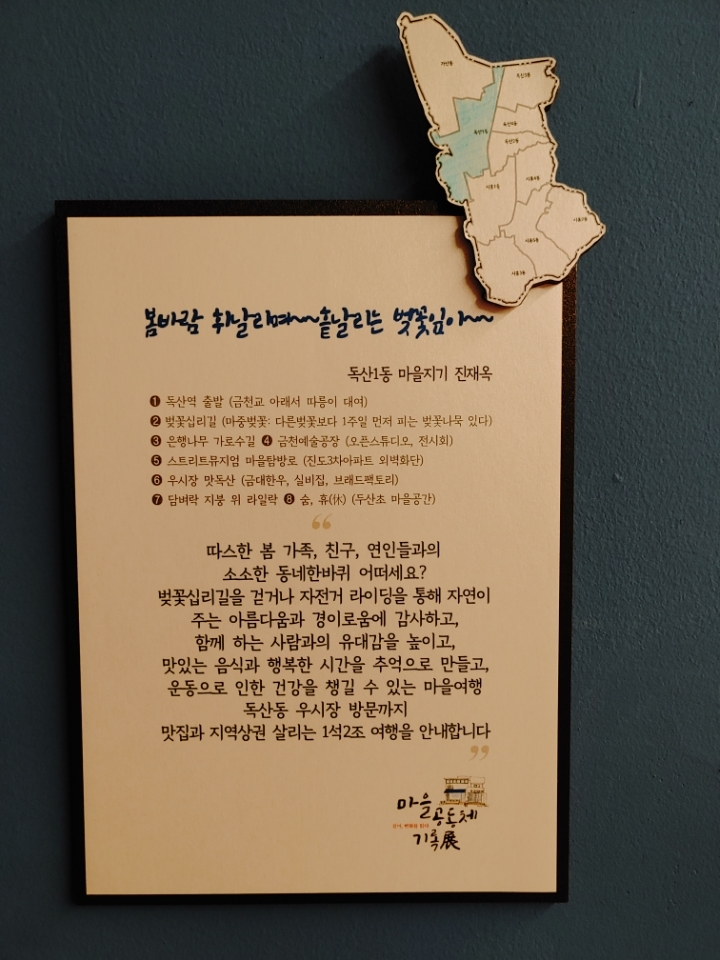 가산동
독산3동
독산4동
독산1동
독산2동
시흥1동
시흥4동
시흥2동
시흥5동
시흥3동
봄바람 휘날리며~~흩날리는 벚꽃잎이~~
독산1동 마을지기 진재옥
❶ 독산역 출발 (금천교 아래서 따릉이 대여)
❷ 벚꽃십리길 (마중벚꽃: 다른벚꽃보다 1주일 먼저 피는 벚꽃나묵 있다)
❸ 은행나무 가로수길 ❹ 금천예술공장 (오픈스튜디오, 전시회)
❺ 스트리트뮤지엄 마을탐방로 (진도3차아파트 외벽화단)
❻ 우시장 맛독산 (금대한우, 실비집, 브래드팩토리)
❼ 담벼락 지붕 위 라일락 ❽ 숨, 휴(休) (두산초 마을공간)
“
따스한 봄 가족, 친구, 연인들과의
소소한 동네한바퀴 어떠세요?
벚꽃십리길을 걷거나 자전거 라이딩을 통해 자연이
주는 아름다움과 경이로움에 감사하고,
함께 하는 사람과의 유대감을 높이고,
맛있는 음식과 행복한 시간을 추억으로 만들고,
운동으로 인한 건강을 챙길 수 있는 마을여행
독산동 우시장 방문까지
맛집과 지역상권 살리는 1석2조 여행을 안내합니다
”
마을
공동체
기록展